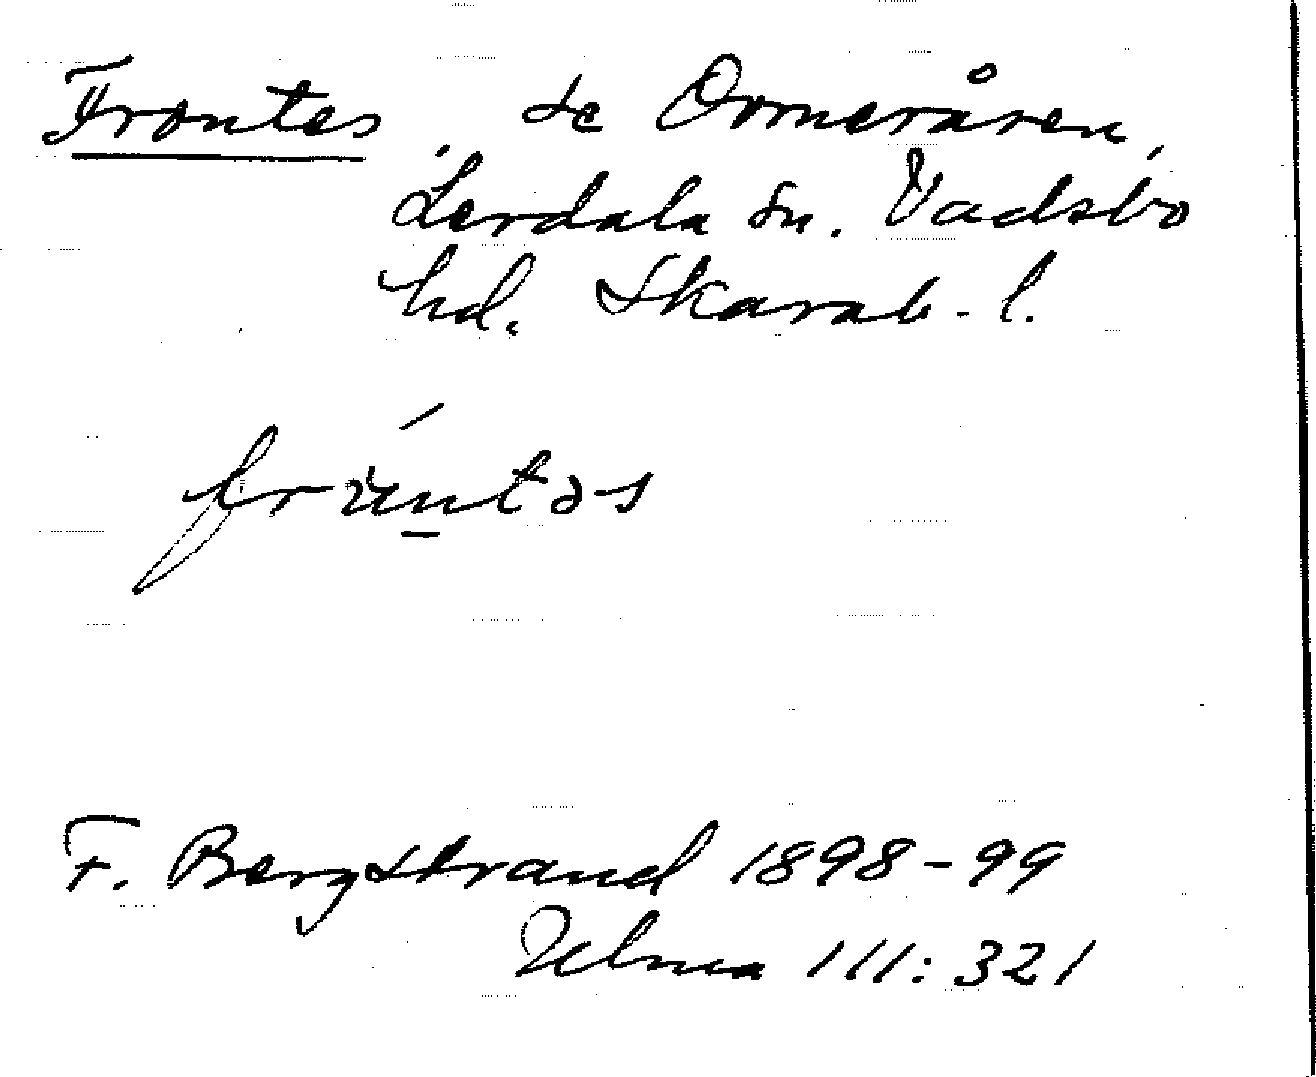 Frontes, se Ormeråsen,
Lerdala sn. Vadsbo
hd. Skarab. l.
F. Bergstrand 1898-99
111:321